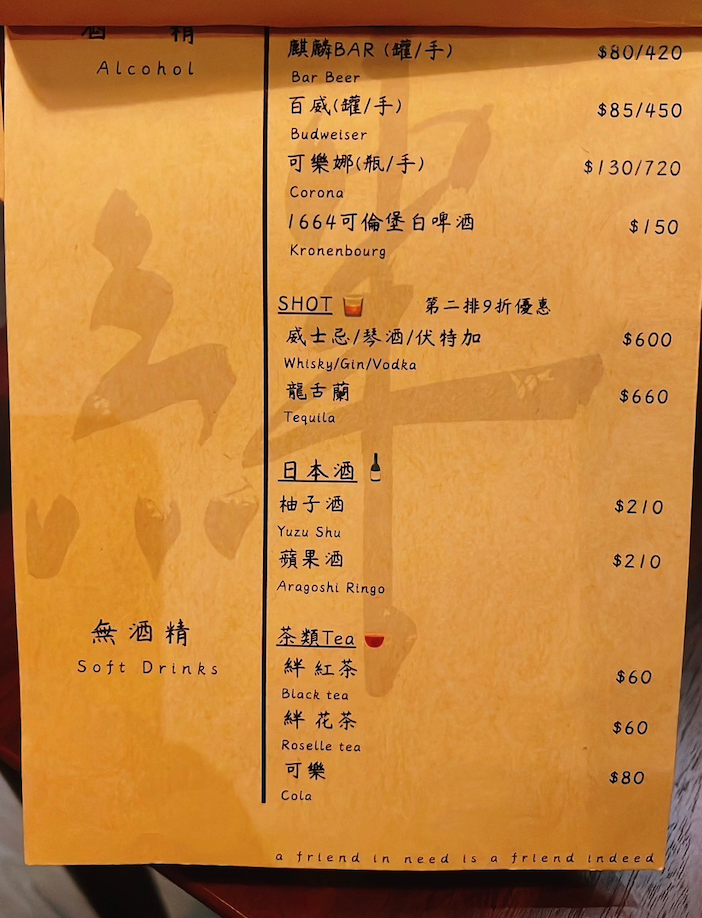 酒 精
Alcohol
麒麟BAR (罐/手) $80/420
Bar Beer
百威(罐/手) $85/450
Budweiser
可樂娜(瓶/手) $130/720
Corona
1664可倫堡白啤酒 $150
Kronenbourg
SHOT 第二排9折優惠
威士忌/琴酒/伏特加 $600
Whisky/Gin/Vodka
龍舌蘭 $660
Tequila
日本酒
柚子酒 $210
Yuzu Shu
蘋果酒 $210
Aragoshi Ringo
無酒精
Soft Drinks
茶類Tea
絆 紅茶 $60
Black tea
絆 花茶 $60
Roselle tea
可樂 $80
Cola
a friend in need is a friend indeed